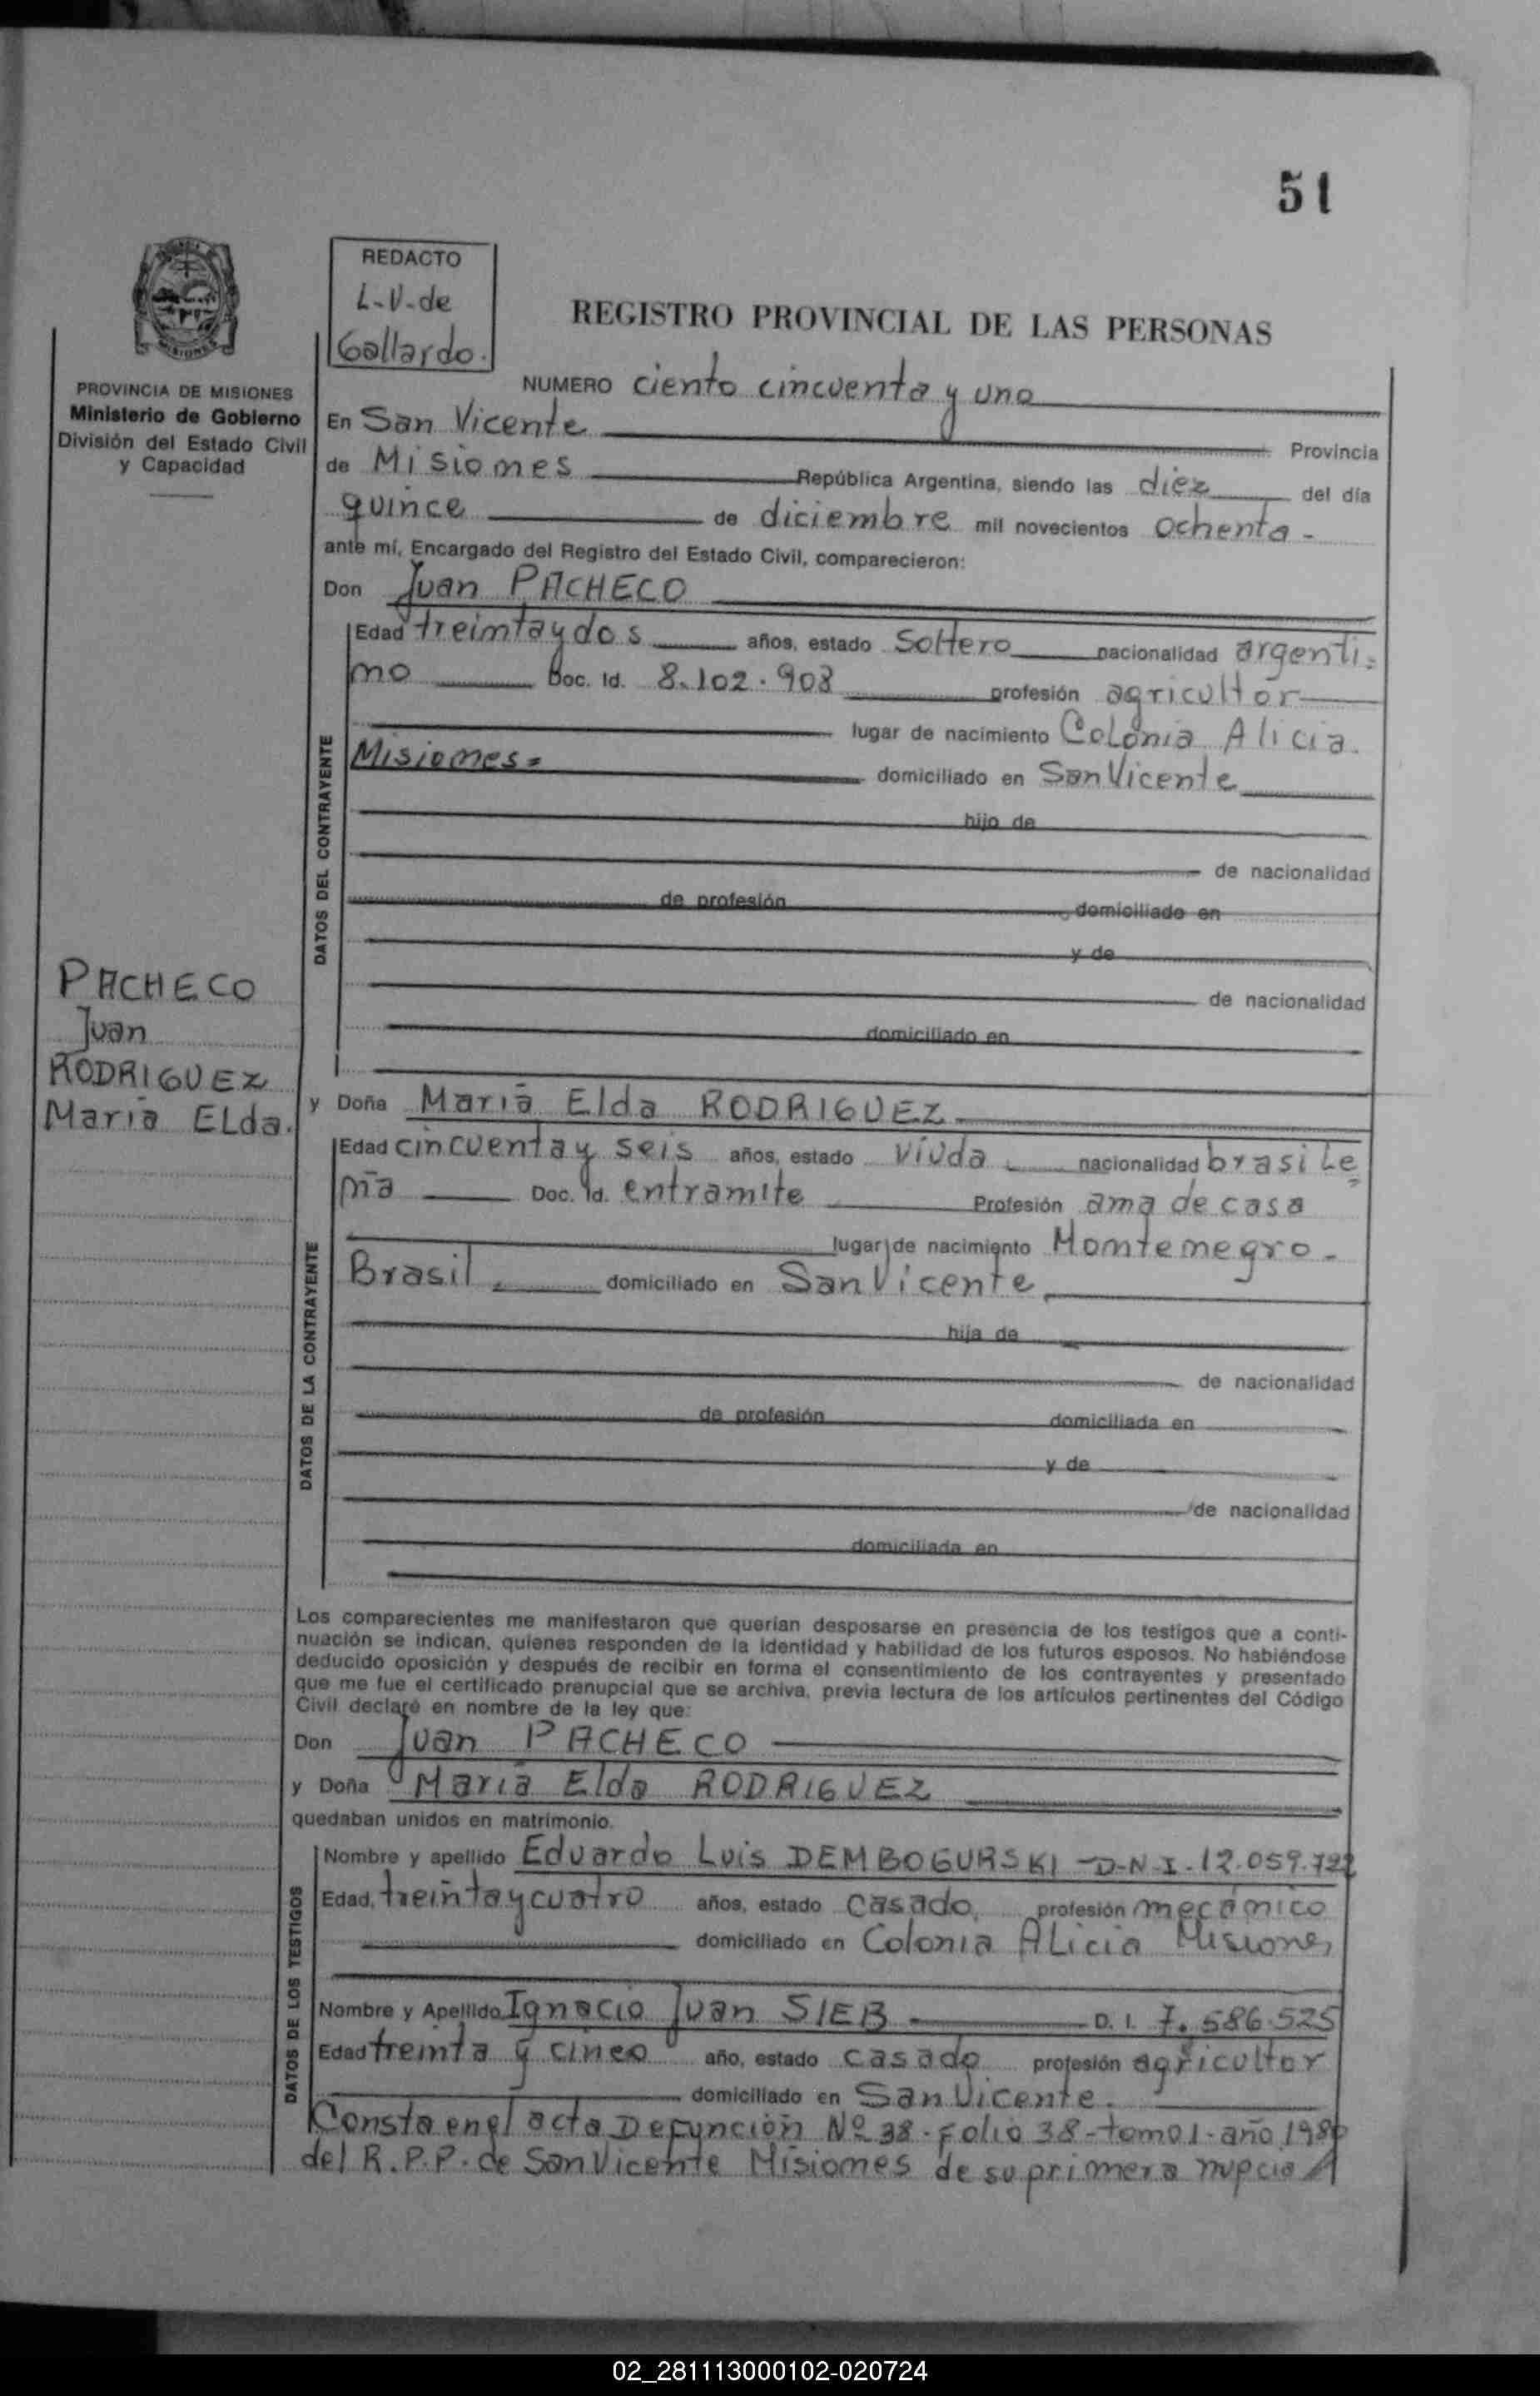 51
REDACTO
L-V-de
Gallardo.
REGISTRO PROVINCIAL DE LAS PERSONAS
PROVINCIA DE MISIONES
Ministerio de Gobierno
División del Estado Civil
y Capacidad
NUMERO ciento cincuenta y uno
En San Vicente Provincia
de Misiones República Argentina, siendo las diez del día
quince de diciembre mil novecientos ochenta -
ante mí, Encargado del Registro del Estado Civil, comparecieron:
Don Juan PACHECO
DATOS DEL CONTRAYENTE
Edad treinta y dos años, estado Soltero nacionalidad argenti-
no Doc. Id. 8.102.908 profesión agricultor
lugar de nacimiento Colonia Alicia.
Misiones= domiciliado en San Vicente
hijo de
de nacionalidad
de profesión domiciliado en
y de
de nacionalidad
domiciliado en
PACHECO
Juan
RODRIGUEZ
Maria ELda.
y Doña Maria Elda RODRIGUEZ
DATOS DE LA CONTRAYENTE
Edad cincuenta y seis años, estado viuda nacionalidad brasile
ña Doc. Id. entramite Profesión ama de casa
lugar de nacimiento Montenegro -
Brasil, domiciliado en San Vicente
hija de
de nacionalidad
de profesión domiciliada en
y de
de nacionalidad
domiciliada en
Los comparecientes me manifestaron que querían desposarse en presencia de los testigos que a conti-
nuación se indican, quienes responden de la identidad y habilidad de los futuros esposos. No habiéndose
deducido oposición y después de recibir en forma el consentimiento de los contrayentes y presentado
que me fue el certificado prenupcial que se archiva, previa lectura de los artículos pertinentes del Código
Civil declaré en nombre de la ley que:
Don Juan PACHECO
y Doña Maria Elda RODRIGUEZ
quedaban unidos en matrimonio.
DATOS DE LOS TESTIGOS
Nombre y apellido Eduardo Luis DEMBOGURSKI - D-N-I- 12.059.722
Edad, treinta y cuatro años, estado casado, profesión mecánico
domiciliado en Colonia ALicia Misiones
Nombre y Apellido Ignacio Juan SIEB D. I. 7.586.525
Edad treinta y cinco año, estado casado profesión agricultor
domiciliado en San Vicente.
Consta en el acta Defunción Nº 38 - Folio 38 - tomo 1 - año 1980
del R.P.P. de San Vicente Misiones de su primera nupcia
02_281113000102-020724